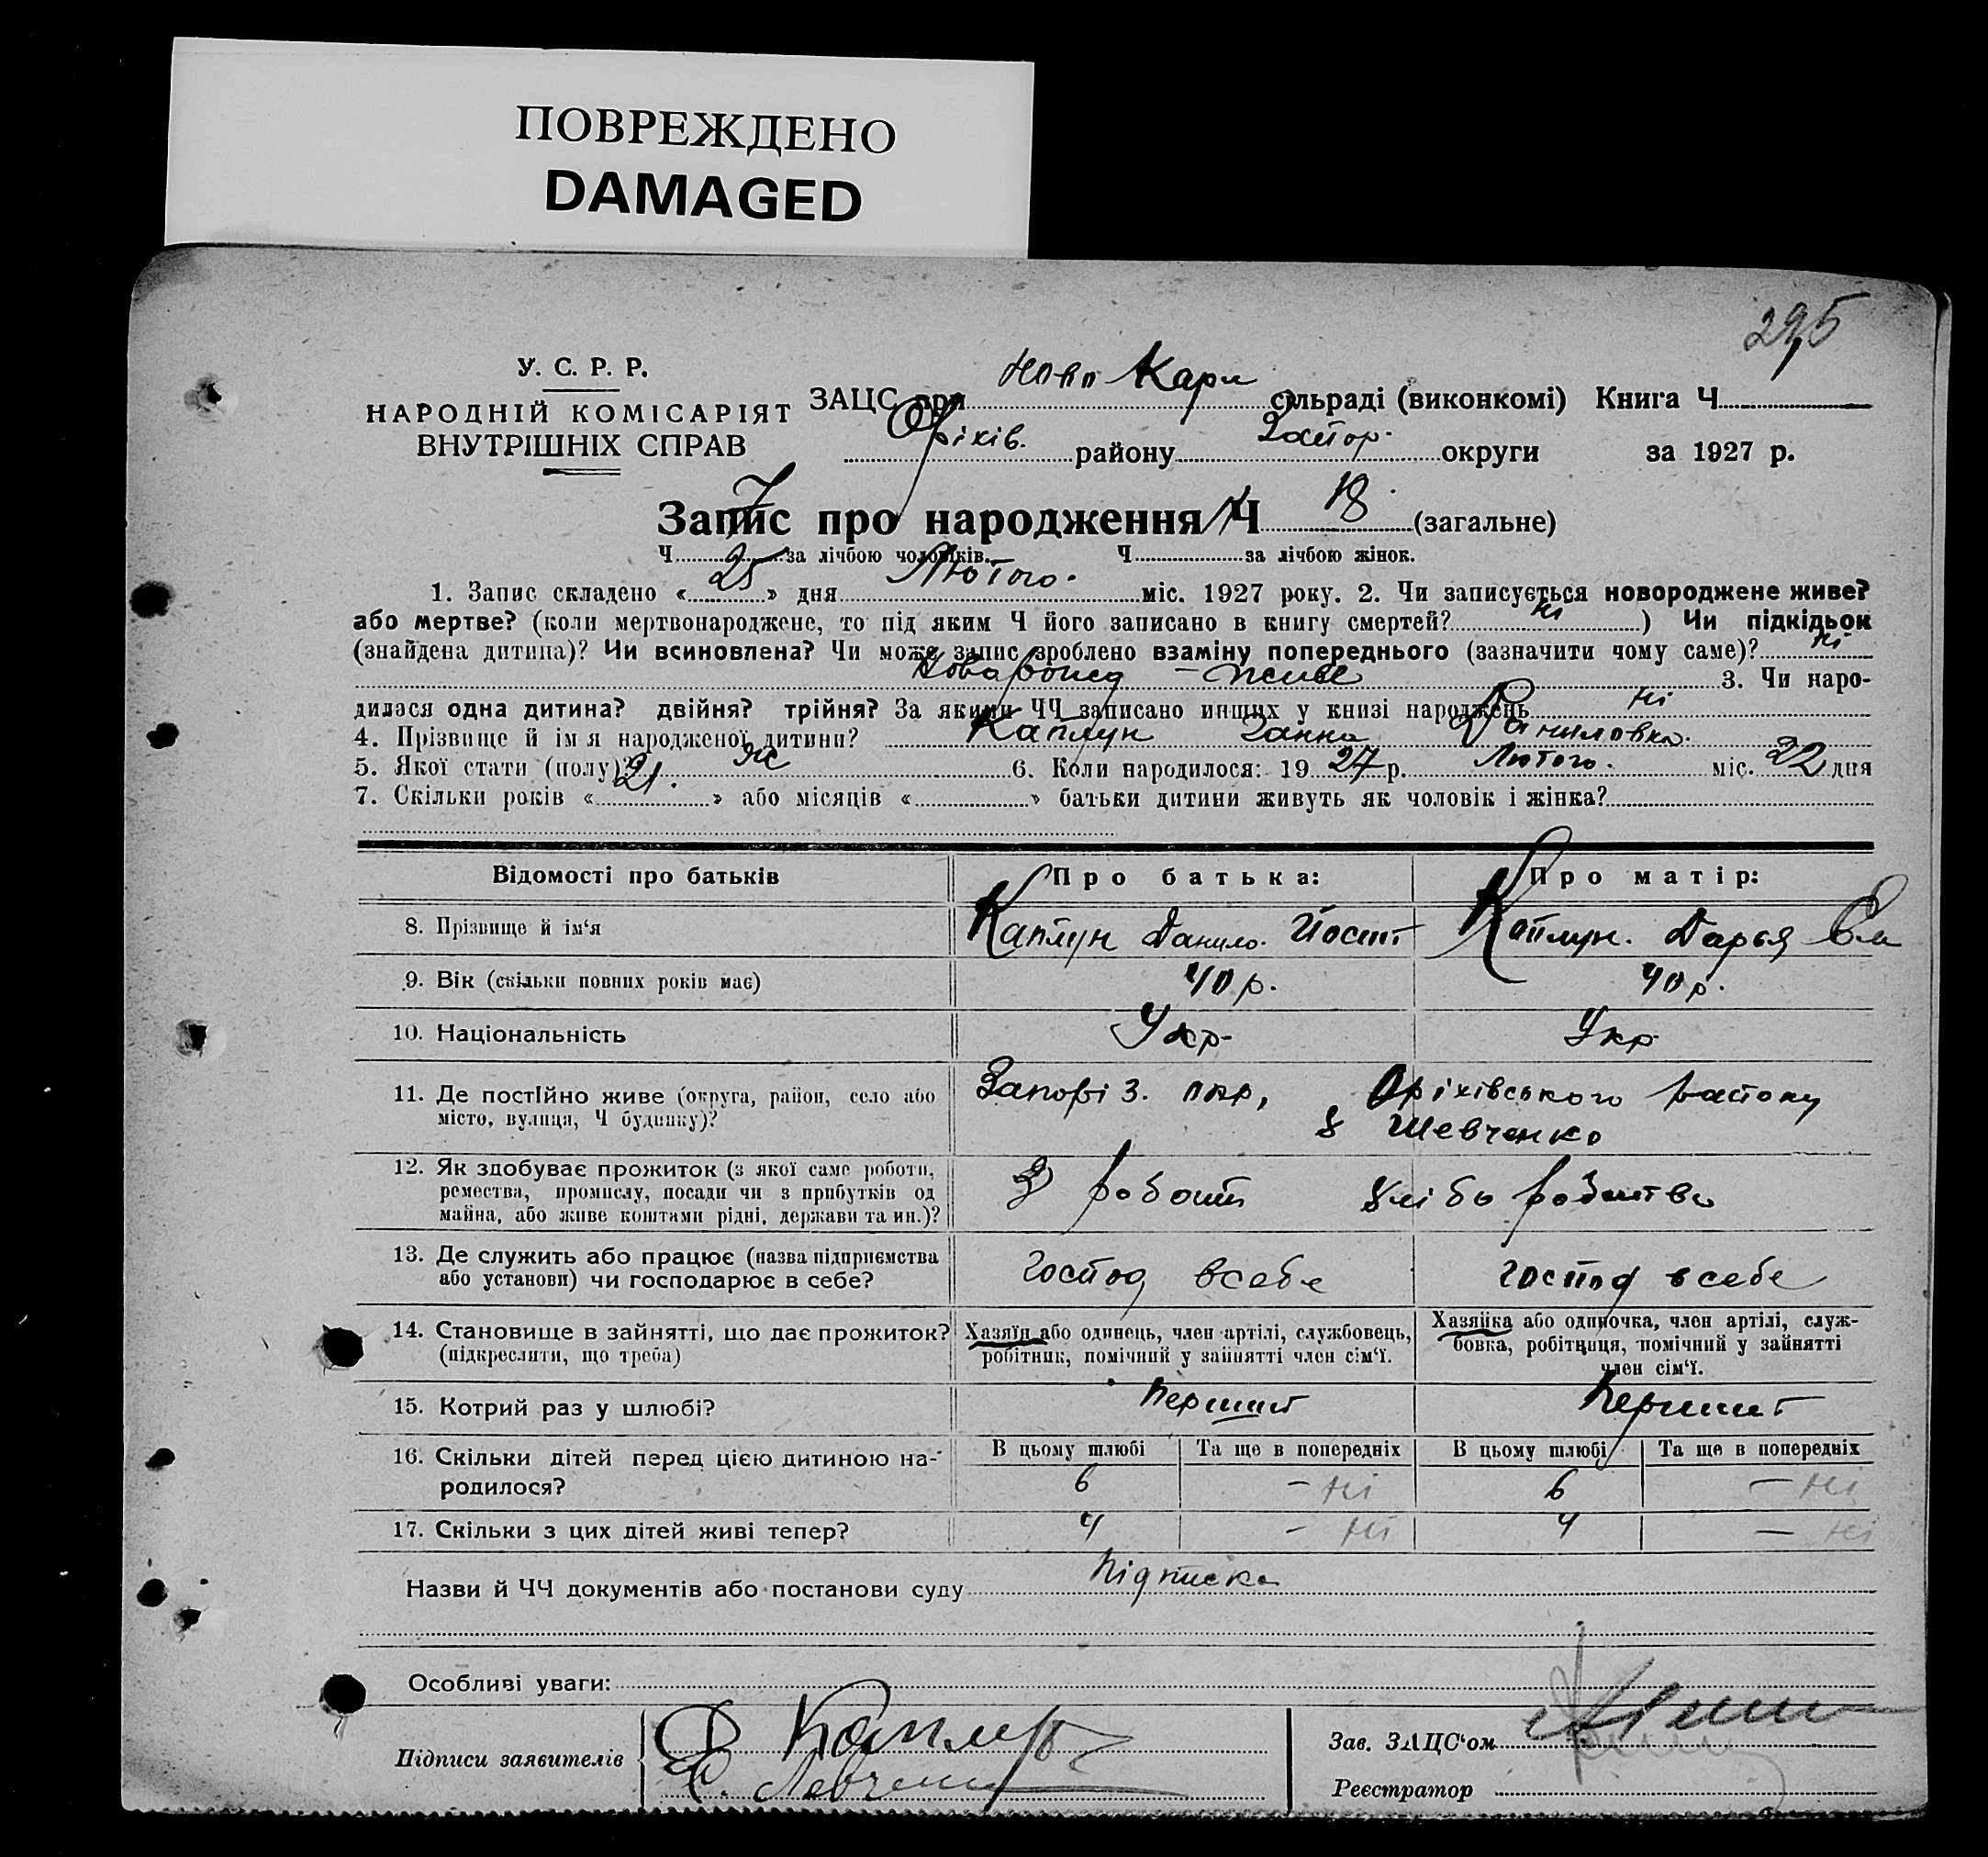 ПОВРЕЖДЕНО
DAMAGED
295
У. С. Р. Р.
НАРОДНІЙ КОМІСАРІЯТ
ВНУТРІШНІХ СПРАВ
ЗАЦС при Ново Карл сільраді (виконкомі) Книга Ч
Оріхів. району Запор. округи за 1927 р.
Запис про народження Ч 18 (загальне)
Ч 7 за лічбою чоловіків. Ч за лічбою жінок.
1. Запис складено « 25 » дня Лютого. міс. 1927 року. 2. Чи записується новороджене живе?
або мертве? (коли мертвонароджене, то під яким Ч його записано в книгу смертей? ні ) Чи підкідьок
(знайдена дитина)? Чи всиновлена? Чи може запис зроблено взаміну попереднього (зазначити чому саме)? ні
– живе 3. Чи наро-
дилася одна дитина? двійня? трійня? За якими ЧЧ записано инших у книзі народжень ні
4. Прізвище й ім'я народженої дитини? Каплун Ганна Даниловна.
5. Якої стати (полу)? ж 6. Коли народилося: 1927 р. Лютого. міс. 22 дня
7. Скільки років « 21. » або місяців « » батьки дитини живуть як чоловік і жінка?
Відомості про батьків Про батька: Про матір:
8. Прізвище й ім'я Каплун Данило. Йосип Каплун. Дарья
9. Вік (скільки повних років має) 40 р. 40 р.
10. Національність Укр. Укр.
11. Де постійно живе (округа, район, село або Запоріз. окр, Оріхівського району
місто, вулиця, Ч будинку)? Шевченко
12. Як здобуває прожиток (з якої саме роботи, З роботи хлібо робитва
ремества, промислу, посади чи з прибутків од
майна, або живе коштами рідні, держави та ин.)?
13. Де служить або працює (назва підприємства Господ в себе господ в себе
або установи) чи господарює в себе?
14. Становище в зайнятті, що дає прожиток? Хазяїн або одинець, член артілі, службовець, Хазяйка або одиночка, член артілі, служ-
(підкреслити, що треба) робітник, помічний у зайнятті член сім'ї. бовка, робітниця, помічний у зайнятті
член сім'ї.
15. Котрий раз у шлюбі? Перший Перший
16. Скільки дітей перед цією дитиною на- В цьому шлюбі Та ще в попередніх В цьому шлюбі Та ще в попередніх
родилося? 6 – ні 6 – ні
17. Скільки з цих дітей живі тепер? 4 – ні 4 – ні
Назви й ЧЧ документів або постанови суду Підписка
Особливі уваги:
Підписи заявителів Д Каплун
Зав. ЗАЦС'ом
Реєстратор